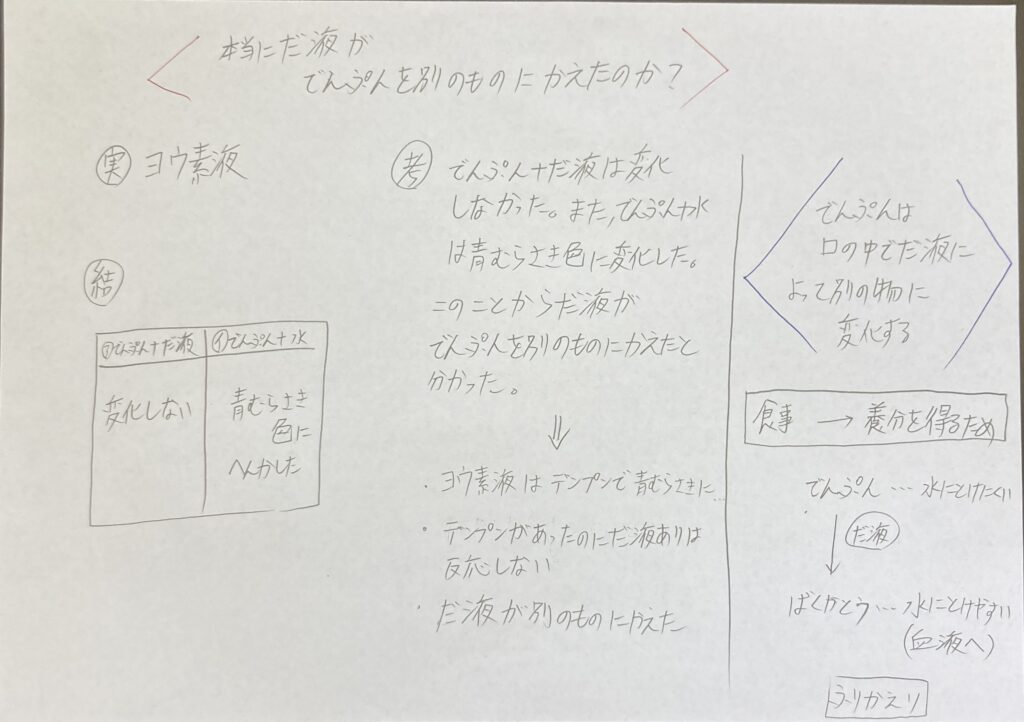 本当にだ液が
でんぷんを別のものにかえたのか？
実 ヨウ素液
結
㋐でんぷん+だ液
㋑でんぷん+水
変化しない
青むらさき
色に
へんかした
考 でんぷん+だ液は変化
しなかった。また,でんぷん+水
は青むらさき色に変化した。
このことからだ液が
でんぷんを別のものにかえたと
分かった。
⇓
・ヨウ素液はデンプンで青むらさきに…
・デンプンがあったのにだ液ありは
反応しない
・だ液が別のものにかえた
でんぷんは
口の中でだ液に
よって別の物に
変化する
食事 → 養分を得るため
でんぷん…水にとけにくい
↓ だ液
ばくがとう…水にとけやすい
(血液へ)
ふりかえり